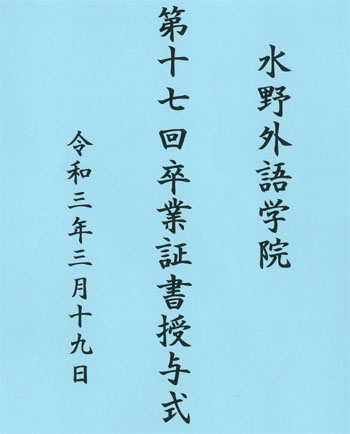 水野外語学院
第十七回卒業証書授与式
令和三年三月十九日